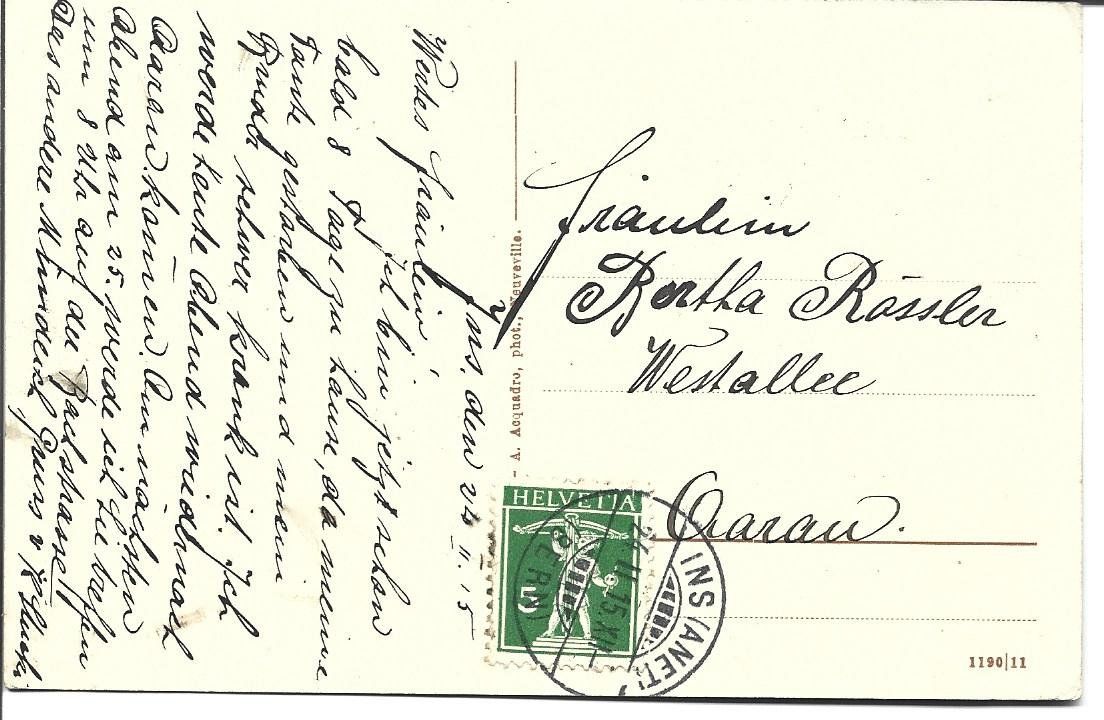 Ins. den 24 II. 15
Wertes Fräulein,
Ich bin jetzt schon
bald 8 Tage zu Hause, da meine
Tante gestorben und mein
Bruder schwer krank ist. Ich
werde heute Abend wieder nach
Aarau kom̄en. Am nächsten
Abend am 25. werde ich Sie treffen
um 8 Uhr auf der Bachstrasse!
Das andere Mündlich Gruss v
A. Acquadro, phot., Neuveville.
Fräulein
Bertha Rössler
Westallee
Aarau.
HELVETIA
5
INS (ANET)
24. II. 15. XII
(BERN)
1190|11